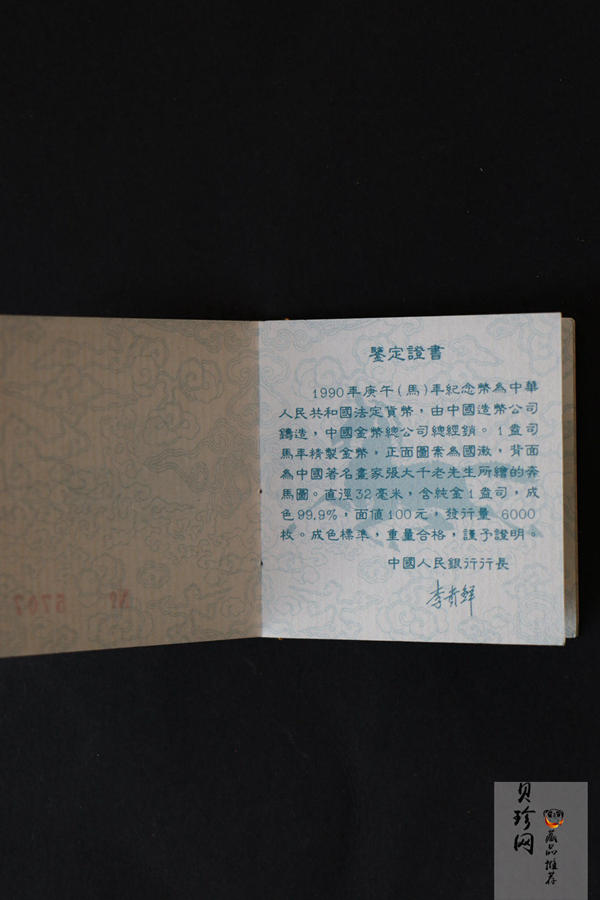 鑒定證書
1990年庚午(馬)年紀念幣為中華
人民共和國法定貨幣，由中國造幣公司
鑄造，中國金幣總公司總經銷。1盎司
馬年精製金幣，正面圖案為國徽，背面
為中國著名畫家張大千老先生所繪的奔
馬圖。直徑32毫米，含純金1盎司，成
色99.9%，面值100元，發行量 6000
枚。成色標準，重量合格，謹予證明。
中國人民銀行行長
李貴鲜
№ 5767
贝珍网
藏品推荐